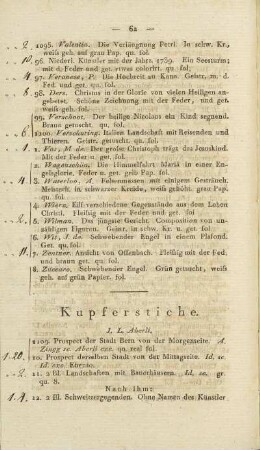 — 62 —
2 1095. Valentin. Die Verläugnung Petri. In schw. Kr.
weiß geh. auf grau Pap. qu. fol.
10 96. Niederl. Künstler mit der Jahrz. 1789. Ein Seesturm;
mit d. Feder und get. etwas colorirt. qu. fol.
4 97. Veronese, P. Die Hochzeit zu Kana. Geistr. m. d.
Fed. und get. qu. fol.
8 98. Ders. Christus in der Glorie von vielen Heiligen an-
gebetet. Schöne Zeichnung mit der Feder, und get.
weiß geh. gr. fol.
99. Verschoot. Der heilige Nicolaus ein Kind segnend.
Braun getuscht. qu. fol.
6 1100. Verschuring. Italien Landschaft mit Reisenden und
Thieren. Geistr. getuscht. qu. fol.
1 1. Vos, M. de. Der große Christoph trägt das Jesuskind.
Mit der Feder u. get. fol.
2 2. Wagenschön. Die Himmelfahrt Mariä in einer
Engelglorie. Schwebend, br. getr. weiß geh. fol.
4 3. Waterloo. A. Felsenmassen mit einigem Gesträuch.
Meisterh. in schwarzer Kreide, weiß gehöht. grau Pap.
qu. fol.
4. Wderx. Eilf verschiedene Gegenstände aus dem Leben
Christi. Fleißig mit der Feder und get. fol
2 5. Widman. Das jüngste Gericht. Composition von un-
zähligen Figuren. Geist. in schw. Kr. u. get. qu. fol.
6. Wit, J. de. Schwebender Engel in einem Plafond.
Get. qu. fol.
11 7. Zentner. Ansicht von Offenbach. Fleißig mit der Fed.
und braun get. qu. fol.
8. Zuccaro. Schwebender Engel. Grün getuscht, weiß
geh. auf grün Pap. gr. fol.
Kupferstiche.
J. L. Aberli.
1109. Prospect der Stadt Bern von der Morgenseite. A.
Zingg sc. Aberli exc. qu. real fol.
1.20. 10. Prospect derselben Stadt von der Mittagseite. Id. sc.
Id. exc. Ebenso.
11. 2 ill. Landschaften mit Bauerhäusern. Id. sc. gr.
qu. 8.
Nach Ihm:
1.4. 12. 2 ill. Schweizergegenden. Ohne Namen des Künstler